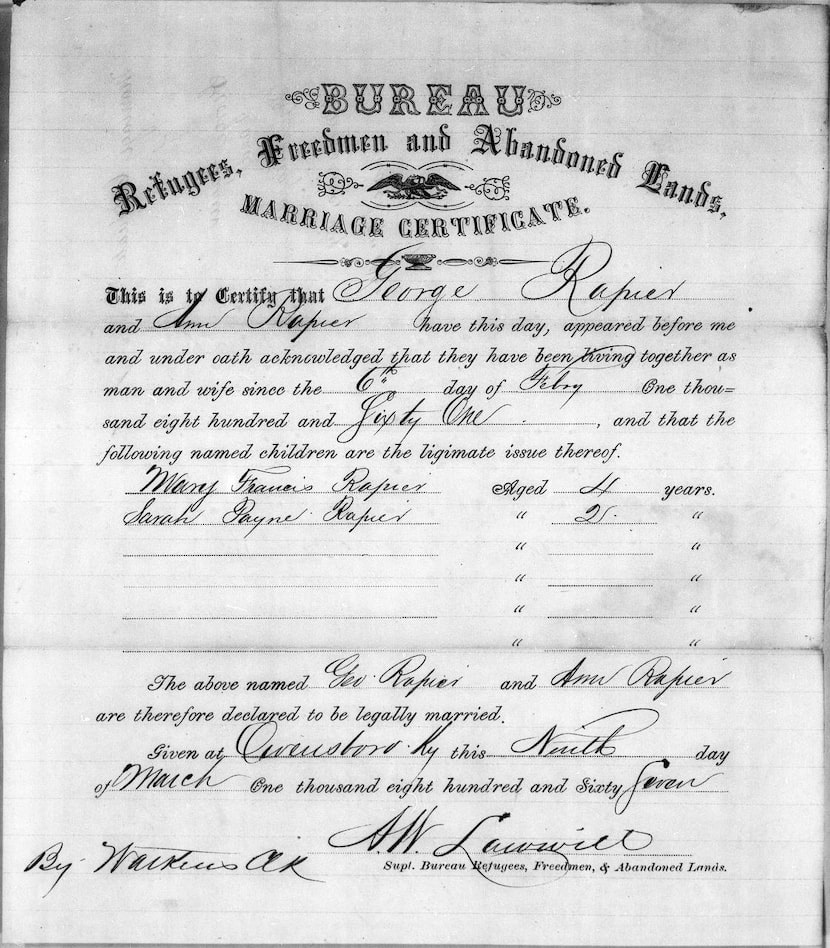 BUREAU
Refugees, Freedmen and Abandoned Lands,
MARRIAGE CERTIFICATE.
This is to Certify that George Rapier
and Ann Rapier have this day, appeared before me
and under oath acknowledged that they have been living together as
man and wife since the 6th day of Febry One thou=
sand eight hundred and Sixty One , and that the
following named children are the ligimate issue thereof.
Mary Francis Rapier Aged 4 years.
Sarah Payne Rapier " 2 "
" "
" "
" "
" "
The above named Geo. Rapier and Ann Rapier
are therefore declared to be legally married.
Given at Owensboro Ky this Ninth day
of March One thousand eight hundred and Sixty Seven
A.W. Lawwill
By Watkins Clk
Supt. Bureau Refugees, Freedmen, & Abandoned Lands.